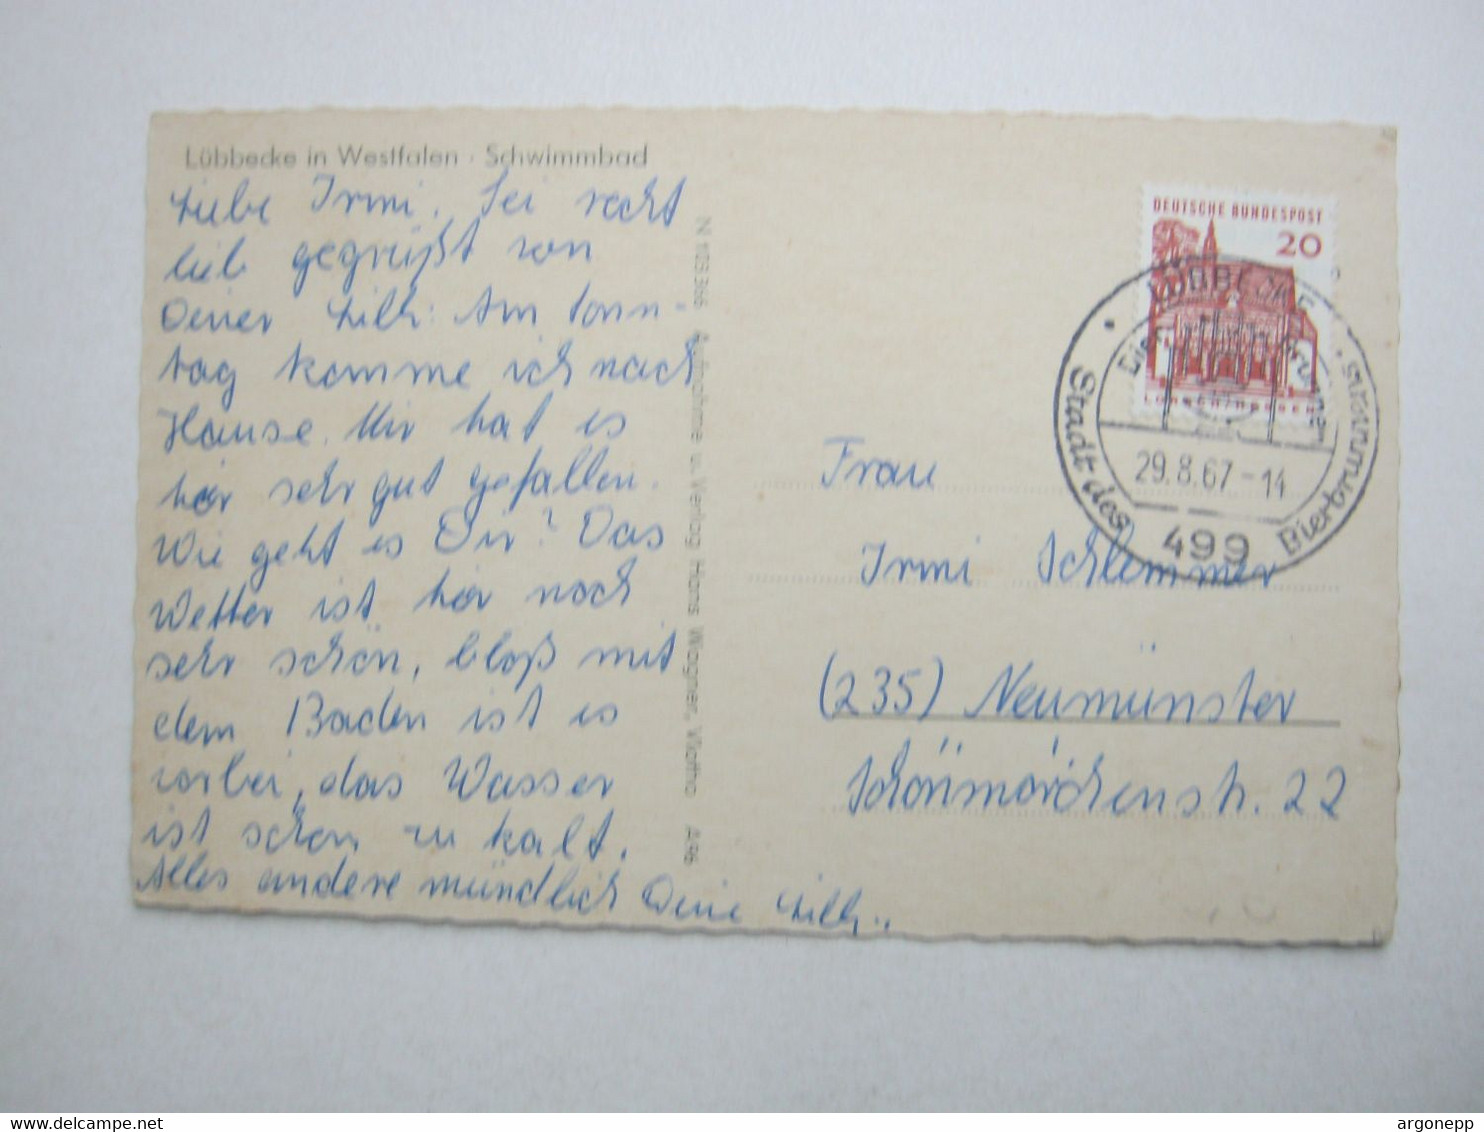 Lübbecke in Westfalen · Schwimmbad
Liebe Irmi. Sei recht
lieb gegrüßt von
Deiner Lilli. Am Sonn-
tag komme ich nach
Hause. Mir hat es
hier sehr gut gefallen.
Wie geht es Dir? Das
Wetter ist hier noch
sehr schön, bloß mit
dem Baden ist es
vorbei, das Wasser
ist schon zu kalt.
Alles andere mündlich Deine Lilli..
N 1103 3666 Aufnahme u. Verlag Hans Wagner, Vlotho A96
DEUTSCHE BUNDESPOST
20
LORSCH/HESSEN
LÜBBECKE
29.8.67-14
499
Stadt des Bierbrunnens
Frau
Irmi Schlemmer
(235) Neumünster
22
argonepp
delcampe.net